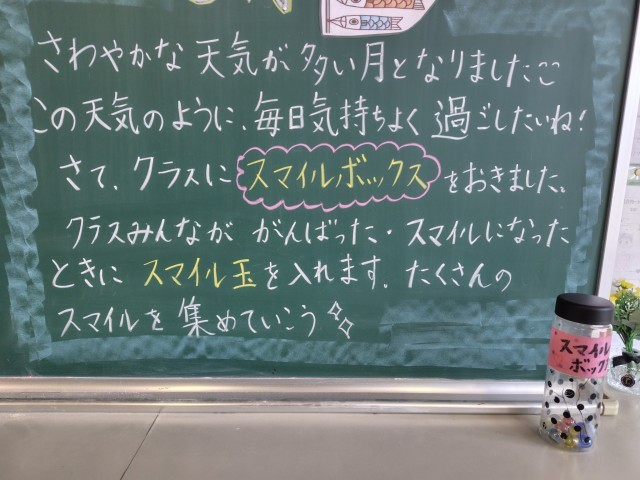 さわやかな天気が多い月となりました
この天気のように、毎日気持ちよく過ごしたいね!
さて、クラスにスマイルボックスをおきました。
クラスみんなががんばった・スマイルになった
ときにスマイル玉を入れます。たくさんの
スマイルを集めていこう
スマイル
ボックス